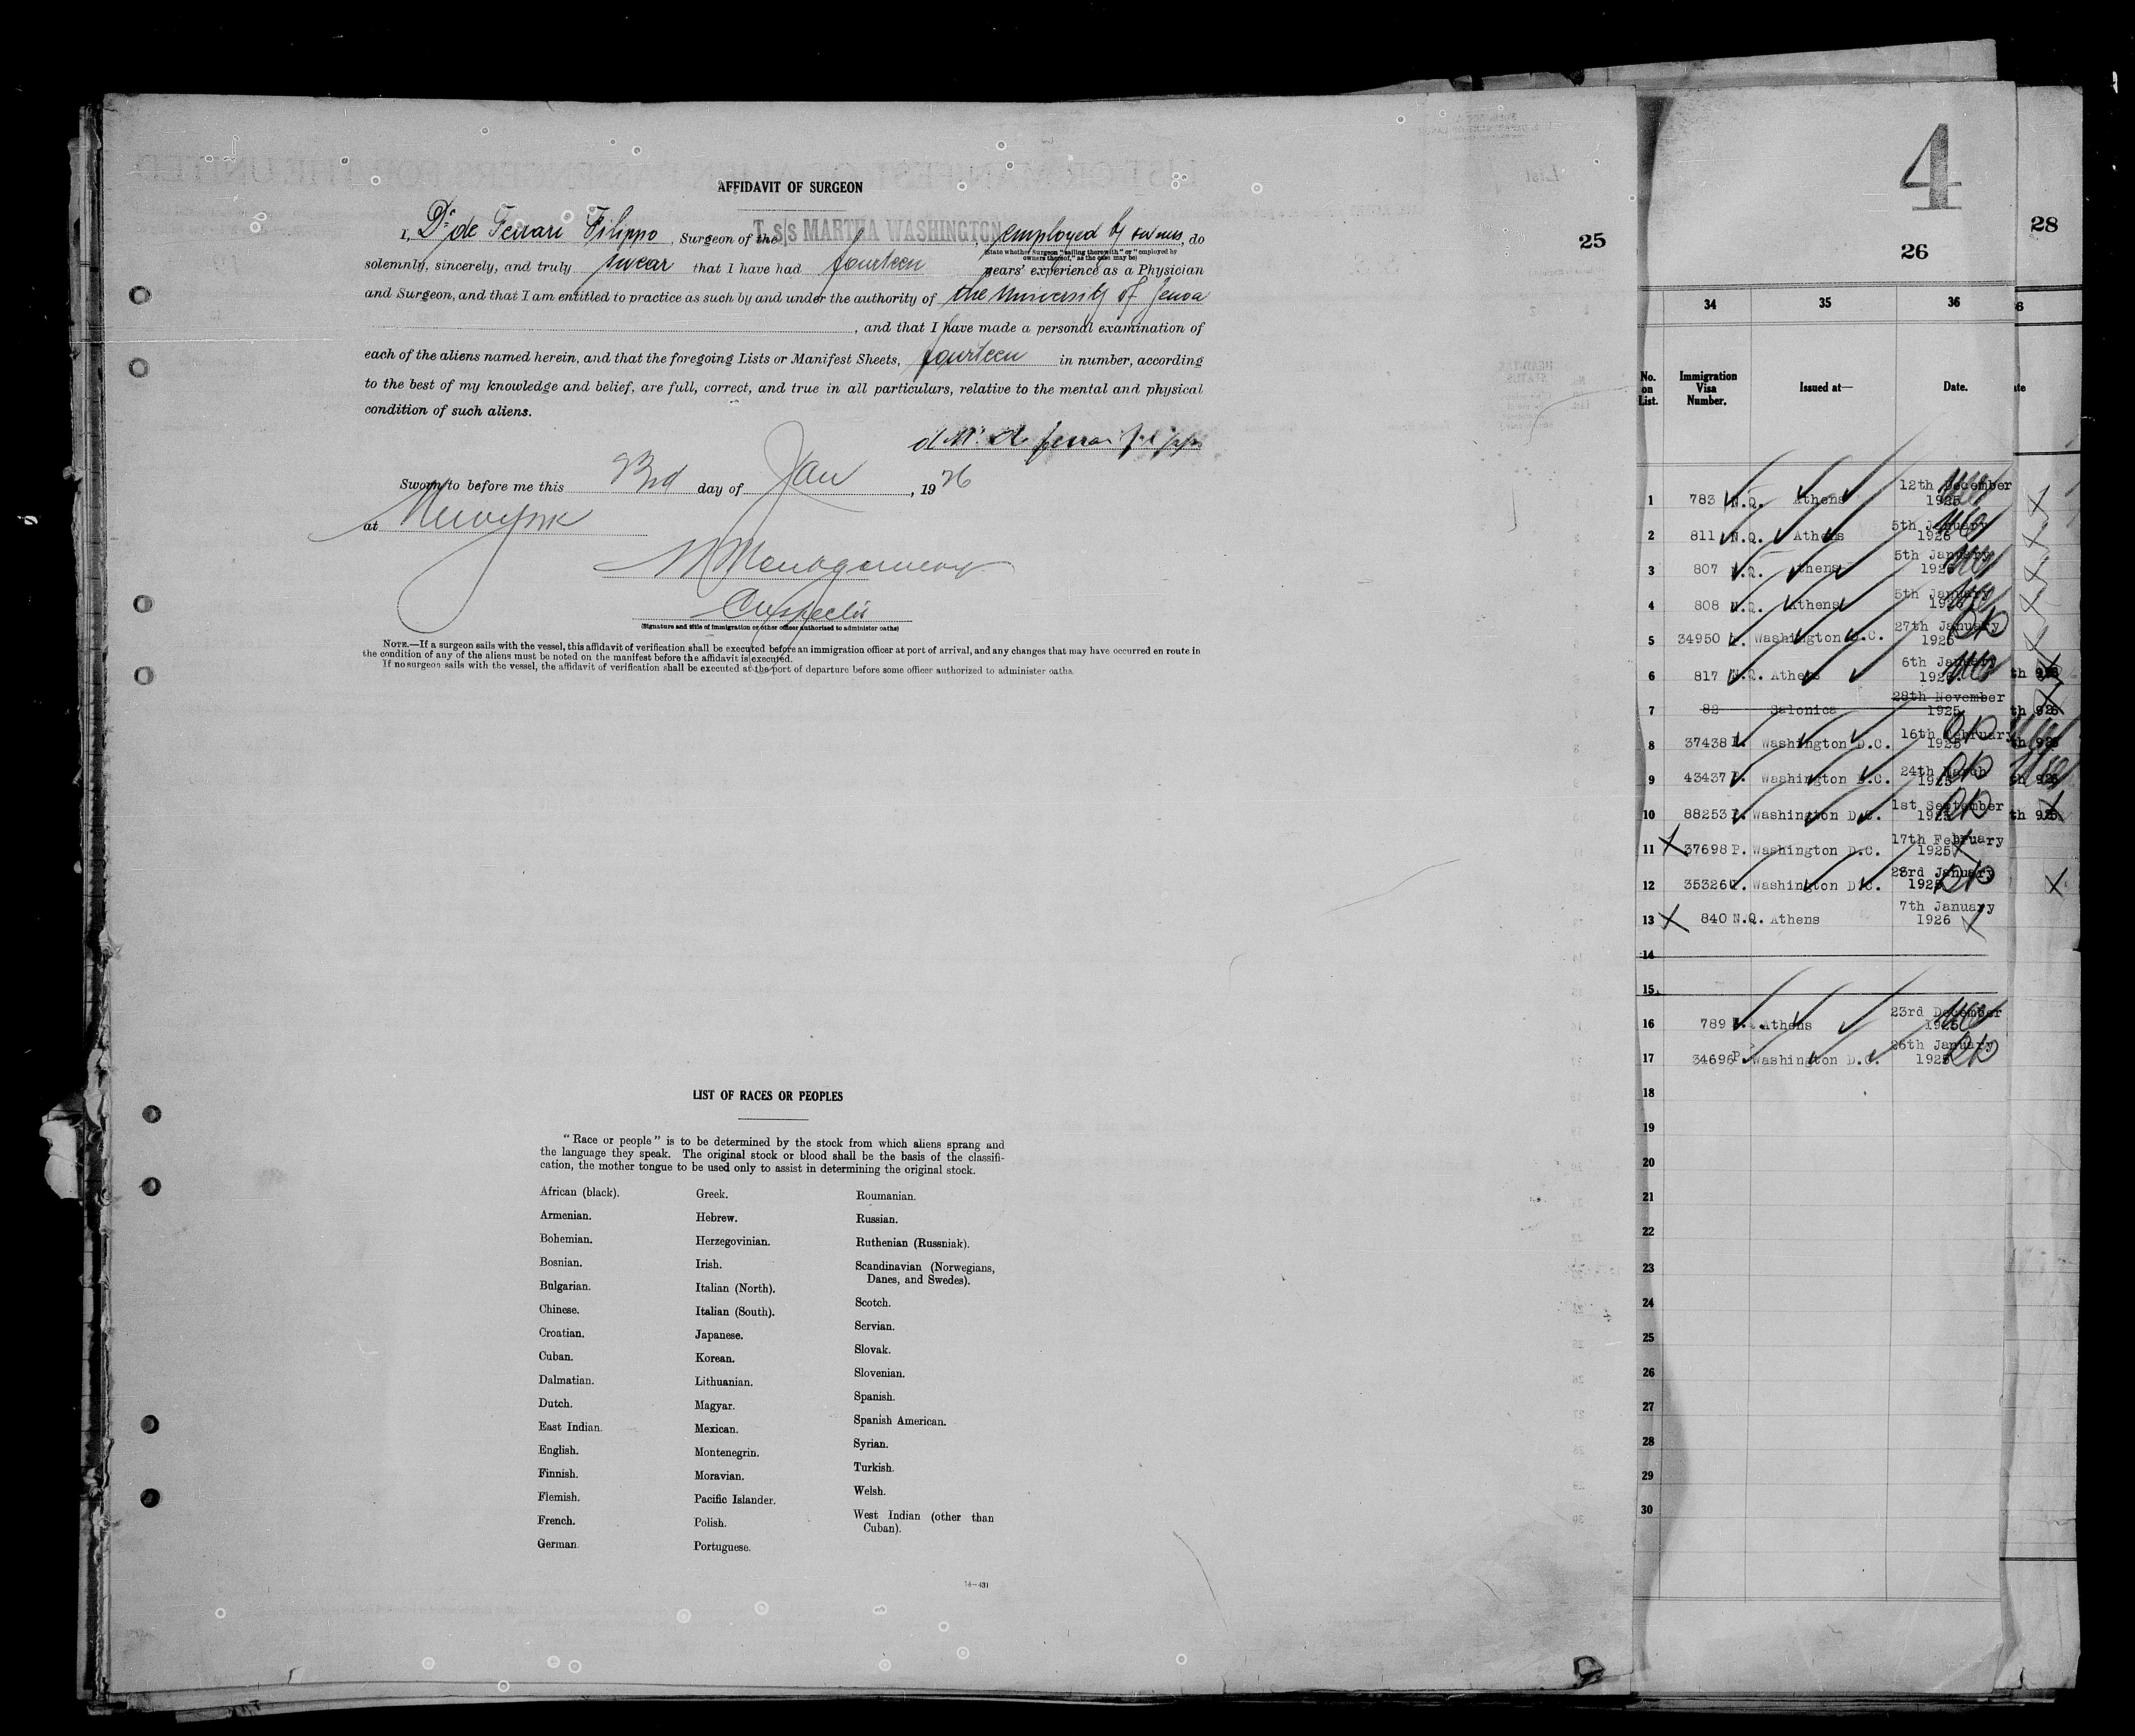 AFFIDAVIT OF SURGEON
I, Dr. de Ferrari Filippo, Surgeon of the T. s/s MARTHA WASHINGTON, employed by owners, do
(State whether Surgeon "sailing therewith" or "employed by owners thereof," as the case may be)
solemnly, sincerely, and truly swear that I have had fourteen years' experience as a Physician
and Surgeon, and that I am entitled to practice as such by and under the authority of the University of Genoa
, and that I have made a personal examination of
each of the aliens named herein, and that the foregoing Lists or Manifest Sheets, fourteen in number, according
to the best of my knowledge and belief, are full, correct, and true in all particulars, relative to the mental and physical
condition of such aliens.
Sworn to before me this 23rd day of Jan, 1926
at New York
(Signature and title of immigration or other officer authorized to administer oaths)
NOTE.—If a surgeon sails with the vessel, this affidavit of verification shall be executed before an immigration officer at port of arrival, and any changes that may have occurred en route in
the condition of any of the aliens must be noted on the manifest before the affidavit is executed.
If no surgeon sails with the vessel, the affidavit of verification shall be executed at the port of departure before some officer authorized to administer oaths.
LIST OF RACES OR PEOPLES
"Race or people" is to be determined by the stock from which aliens sprang and
the language they speak. The original stock or blood shall be the basis of the classifi-
cation, the mother tongue to be used only to assist in determining the original stock.
African (black).
Armenian.
Bohemian.
Bosnian.
Bulgarian.
Chinese.
Croatian.
Cuban.
Dalmatian.
Dutch.
East Indian.
English.
Finnish.
Flemish.
French.
German
Greek.
Hebrew.
Herzegovinian.
Irish.
Italian (North).
Italian (South).
Japanese.
Korean.
Lithuanian.
Magyar.
Mexican.
Montenegrin.
Moravian.
Pacific Islander.
Polish.
Portuguese.
Roumanian.
Russian.
Ruthenian (Russniak).
Scandinavian (Norwegians,
Danes, and Swedes).
Scotch.
Servian.
Slovak.
Slovenian.
Spanish.
Spanish American.
Syrian.
Turkish.
Welsh.
West Indian (other than
Cuban).
14—431
25
4
26
28
34 35 36
No. on List. Immigration Visa Number. Issued at— Date.
1 783 N.Q. Athens 12th December 1925
2 811 N.Q. Athens 5th January 1926
3 807 N.Q. Athens 5th January 1926
4 808 N.Q. Athens 5th January 1926
5 34950 P. Washington D.C. 27th January 1925
6 817 N.Q. Athens 6th January 1926
7 82 Salonica 28th November 1925
8 37438 P. Washington D.C. 16th February 1925
9 43437 P. Washington D.C. 24th March 1925
10 88253 P. Washington D.C. 1st September 1925
11 37698 P. Washington D.C. 17th February 1925
12 35326 P. Washington D.C. 23rd January 1925
13 840 N.Q. Athens 7th January 1926
14
15
16 789 Athens 23rd December 1925
17 34696 P. Washington D.C. 26th January 1925
18
19
20
21
22
23
24
25
26
27
28
29
30